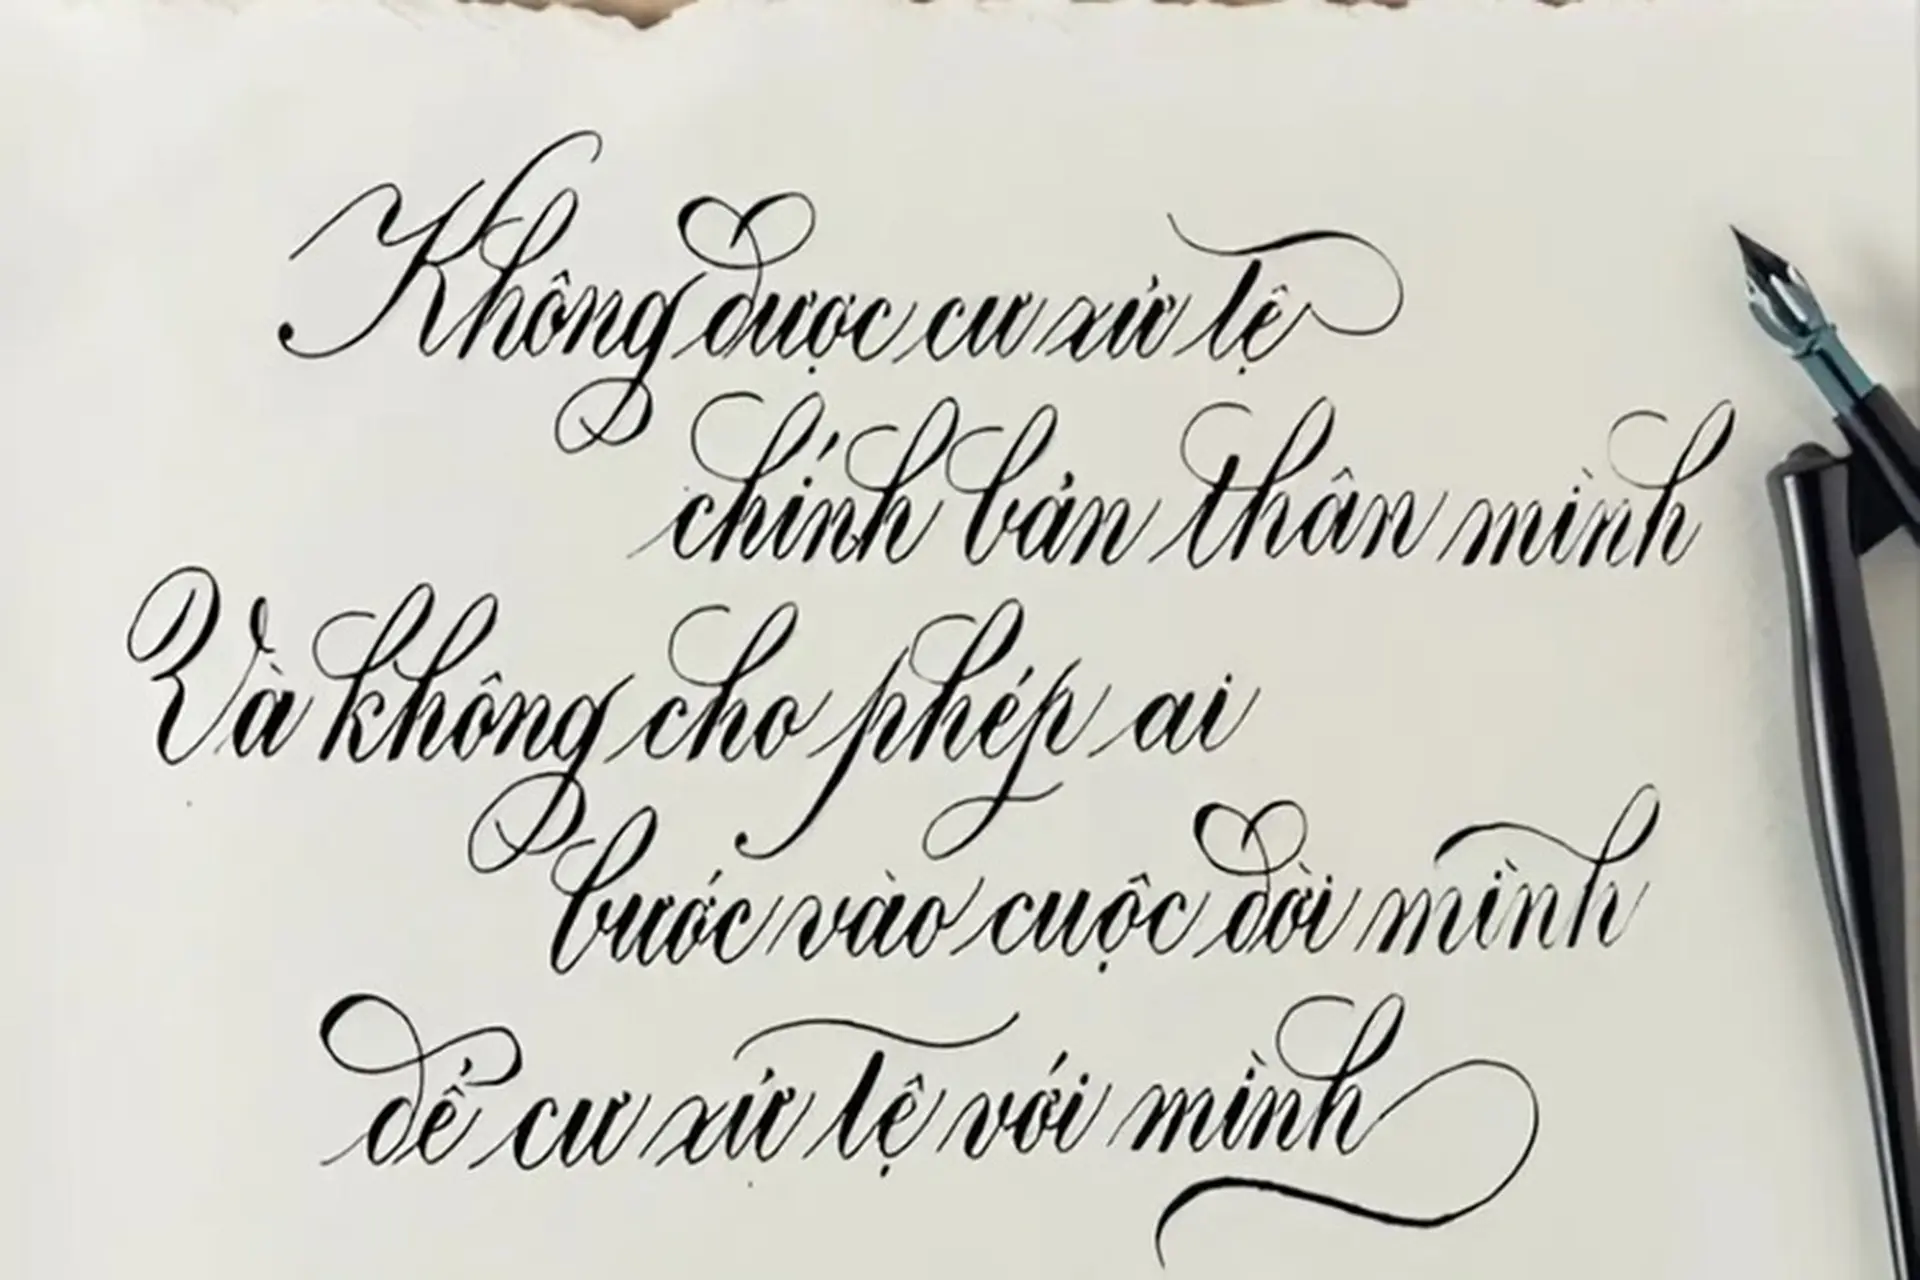 Không được cư xử tệ
chính bản thân mình
Và không cho phép ai
bước vào cuộc đời mình
để cư xử tệ với mình